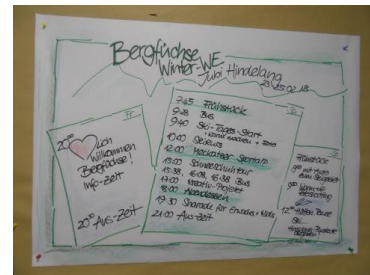 Bergfüchse
Winter-WE
Jubi Hindelang
23.-25.02.18
Fr
20⁰⁰
lich
Willkommen
Bergfüchse!
Info-Zeit
20³⁰ Aus-Zeit
Sa
7:45 Frühstück
9:28 Bus
9:40 Ski-Tages-Start
10:00 Skikurs
12:00 Mockataer Sportalp
13:00 Schneeschuhtour
15:38, 16:08, 16:38 Bus
17:00 Kreativ-Projekt
18:00 Abendessen
19:30 Scharade für Erwachs. + Kids
21:00 Aus-Zeit
So
Frühstück
9⁰⁰ mit Auto
zum Skigebiet
12⁰⁰ Hütten Pause
Ski